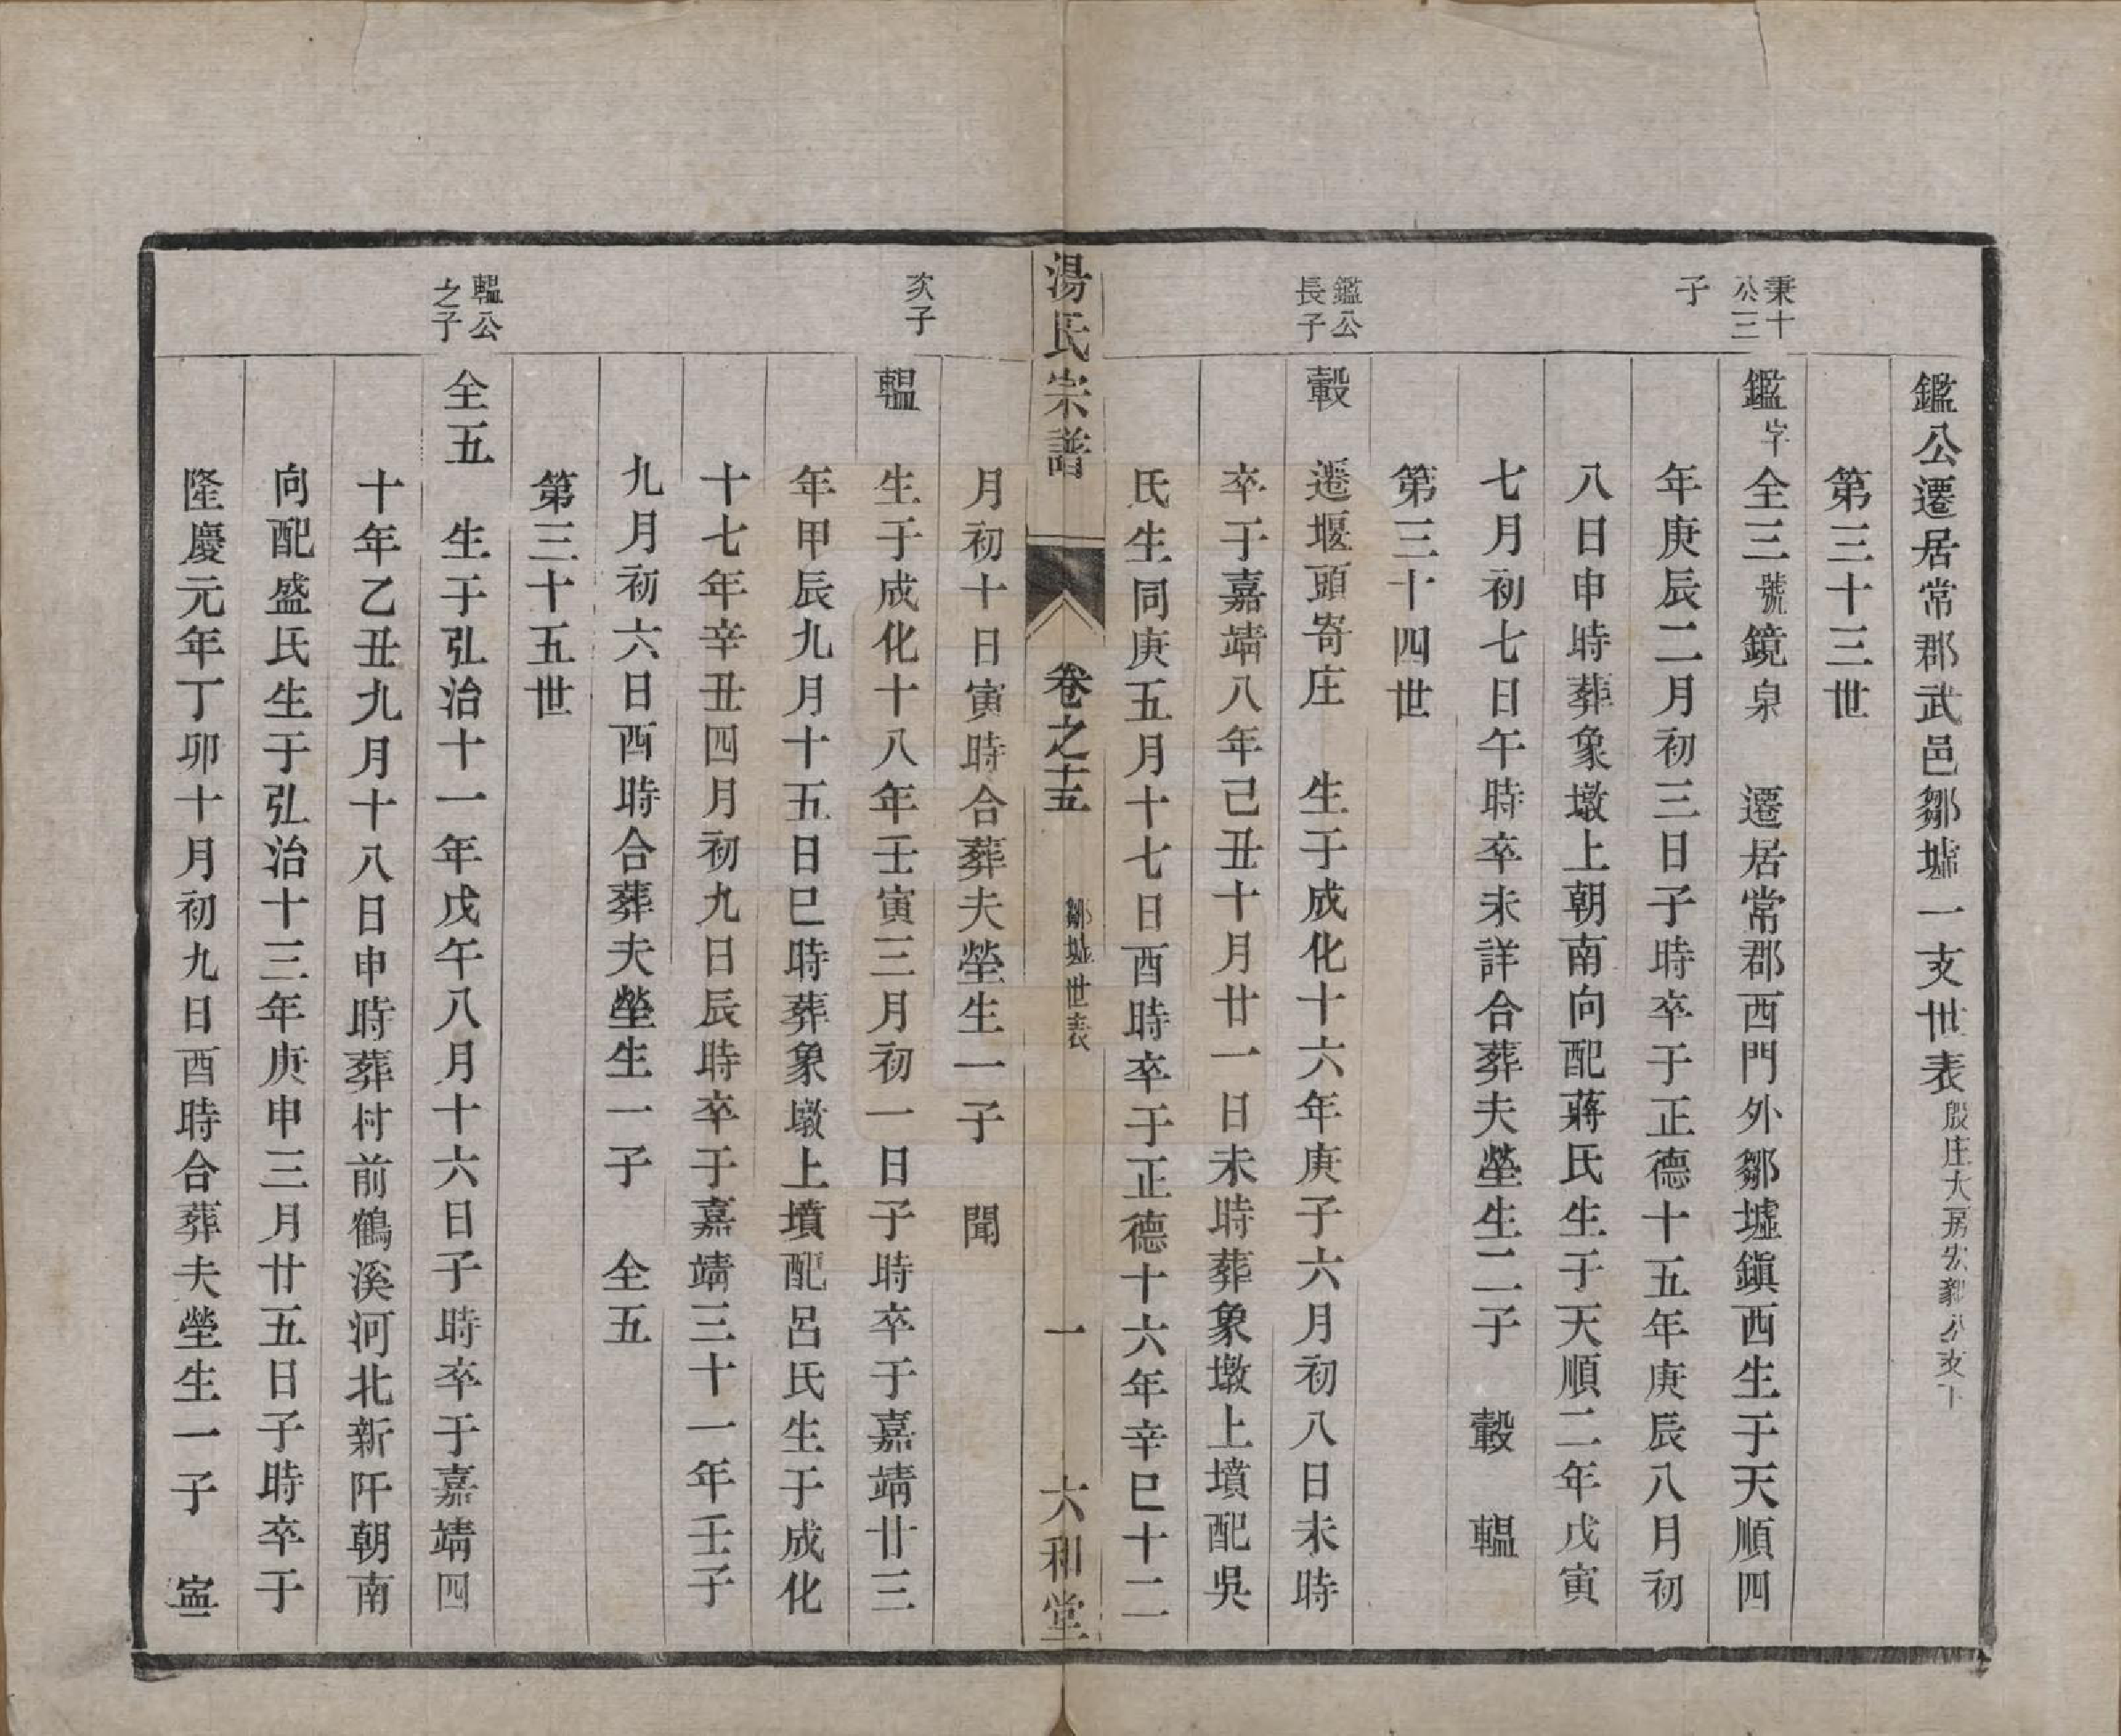 鑑公遷居常郡武邑鄒墟一支世表殷庄大房宏毅公支下
第三十三世
秉十公三子
鑑字全三號鏡泉 遷居常郡西門外鄒墟鎮西生于天順四
年庚辰二月初三日子時卒于正德十五年庚辰八月初
八日申時葬象墩上朝南向配蔣氏生于天順二年戊寅
七月初七日午時卒未詳合葬夫塋生二子 轂 轀
第三十四世
鑑公長子
轂 遷堰頭寄庄 生于成化十六年庚子六月初八日未時
卒于嘉靖八年己丑十月廿一日未時葬象墩上墳配吳
氏生同庚五月十七日酉時卒于正德十六年辛巳十二
湯氏宗譜 卷之十五 鄒墟世表 一 六和堂
月初十日寅時合葬夫塋生一子 聞
次子
轀 生于成化十八年壬寅三月初一日子時卒于嘉靖廿三
年甲辰九月十五日巳時葬象墩上墳配呂氏生于成化
十七年辛丑四月初九日辰時卒于嘉靖三十一年壬子
九月初六日酉時合葬夫塋生一子 全五
第三十五世
轀公之子
全五 生于弘治十一年戊午八月十六日子時卒于嘉靖四
十年乙丑九月十八日申時葬村前鶴溪河北新阡朝南
向配盛氏生于弘治十三年庚申三月廿五日子時卒于
隆慶元年丁卯十月初九日酉時合葬夫塋生一子 寧